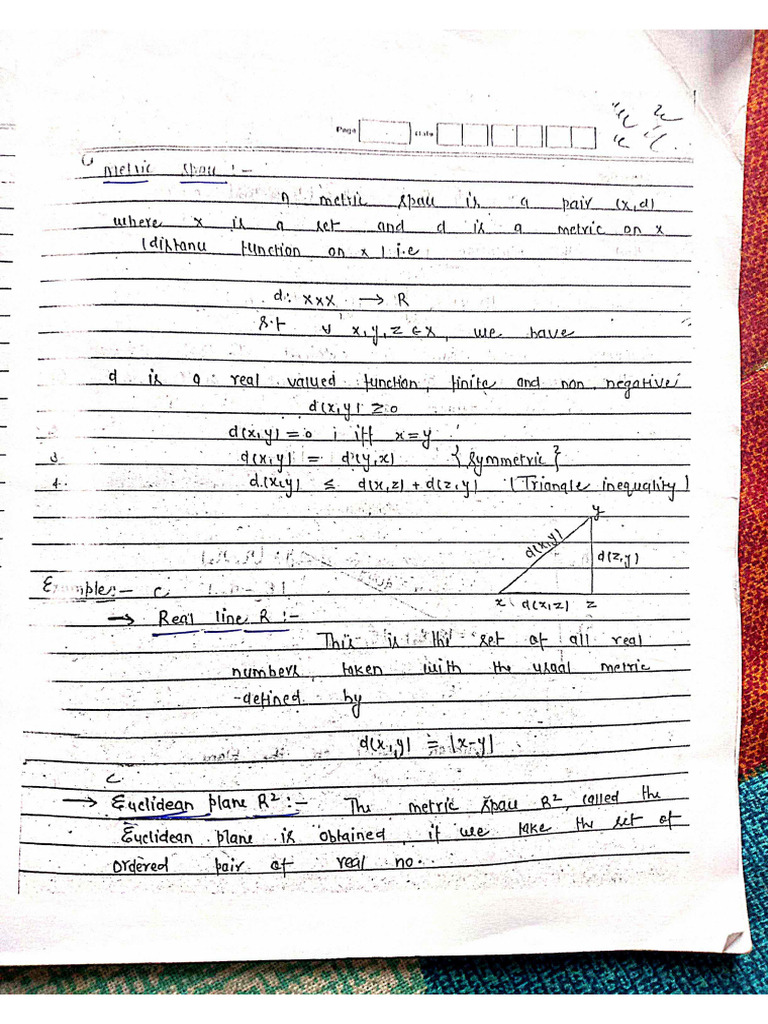 Page Date
Metric Space :-
A metric space is a pair (x,d)
where x is a set and d is a metric on x
(distance function on x) i.e
d: x×x → R
S.t ∀ x,y,z ∈ X, we have
d is a real valued function, finite and non negative
d(x,y) ≥ 0
d(x,y) = 0 ; iff x=y
3 d(x,y) = d(y,x) {Symmetric}
4. d(x,y) ≤ d(x,z) + d(z,y) (Triangle inequality)
y
d(x,y)
d(z,y)
x d(x,z) z
Example:- c
→ Real line R :-
This is the set of all real
numbers, taken with the usual metric
-defined by
d(x,y) = |x-y|
c
→ Euclidean plane R² :- The metric space R², called the
Euclidean plane is obtained, if we take the set of
ordered pair of real no.